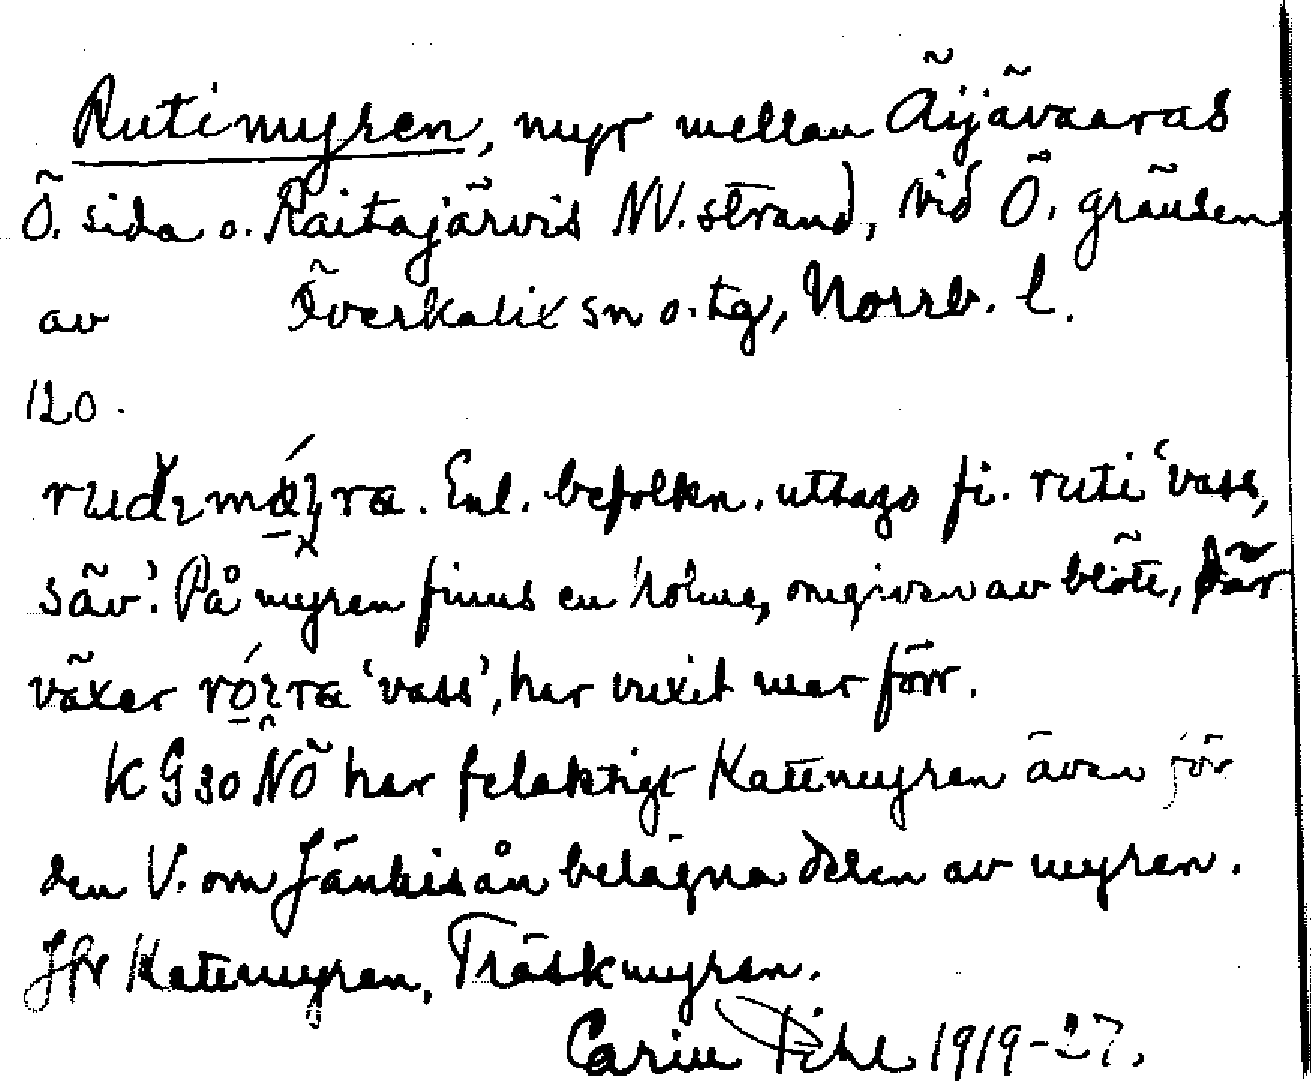 Rutimyren, myr mellan Äijävaaras
Ö. sida o. Raitajärvis NV. strand, vid Ö. gränsen
av Överkalix sn o. tg, Norrb. l.
120.
Enl. befolkn. uttages fi. ruti 'vass,
säv'. På myren finns en holme, omgiven av blöte, där
växer 'vass', har vuxit mer förr.
KG 30 NÖ har felaktigt Kattmyren även för
den V. om Jänkisån belägna delen av myren.
Jfr Kattmyren, Träskmyren.
Carin Pihl 1919-27.